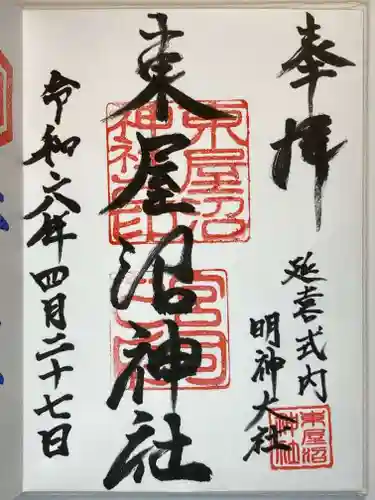 奉拝
延喜式内
明神大社
東屋沼神社
令和六年四月二十七日
東屋沼
神社印
宮司
東屋沼
神社